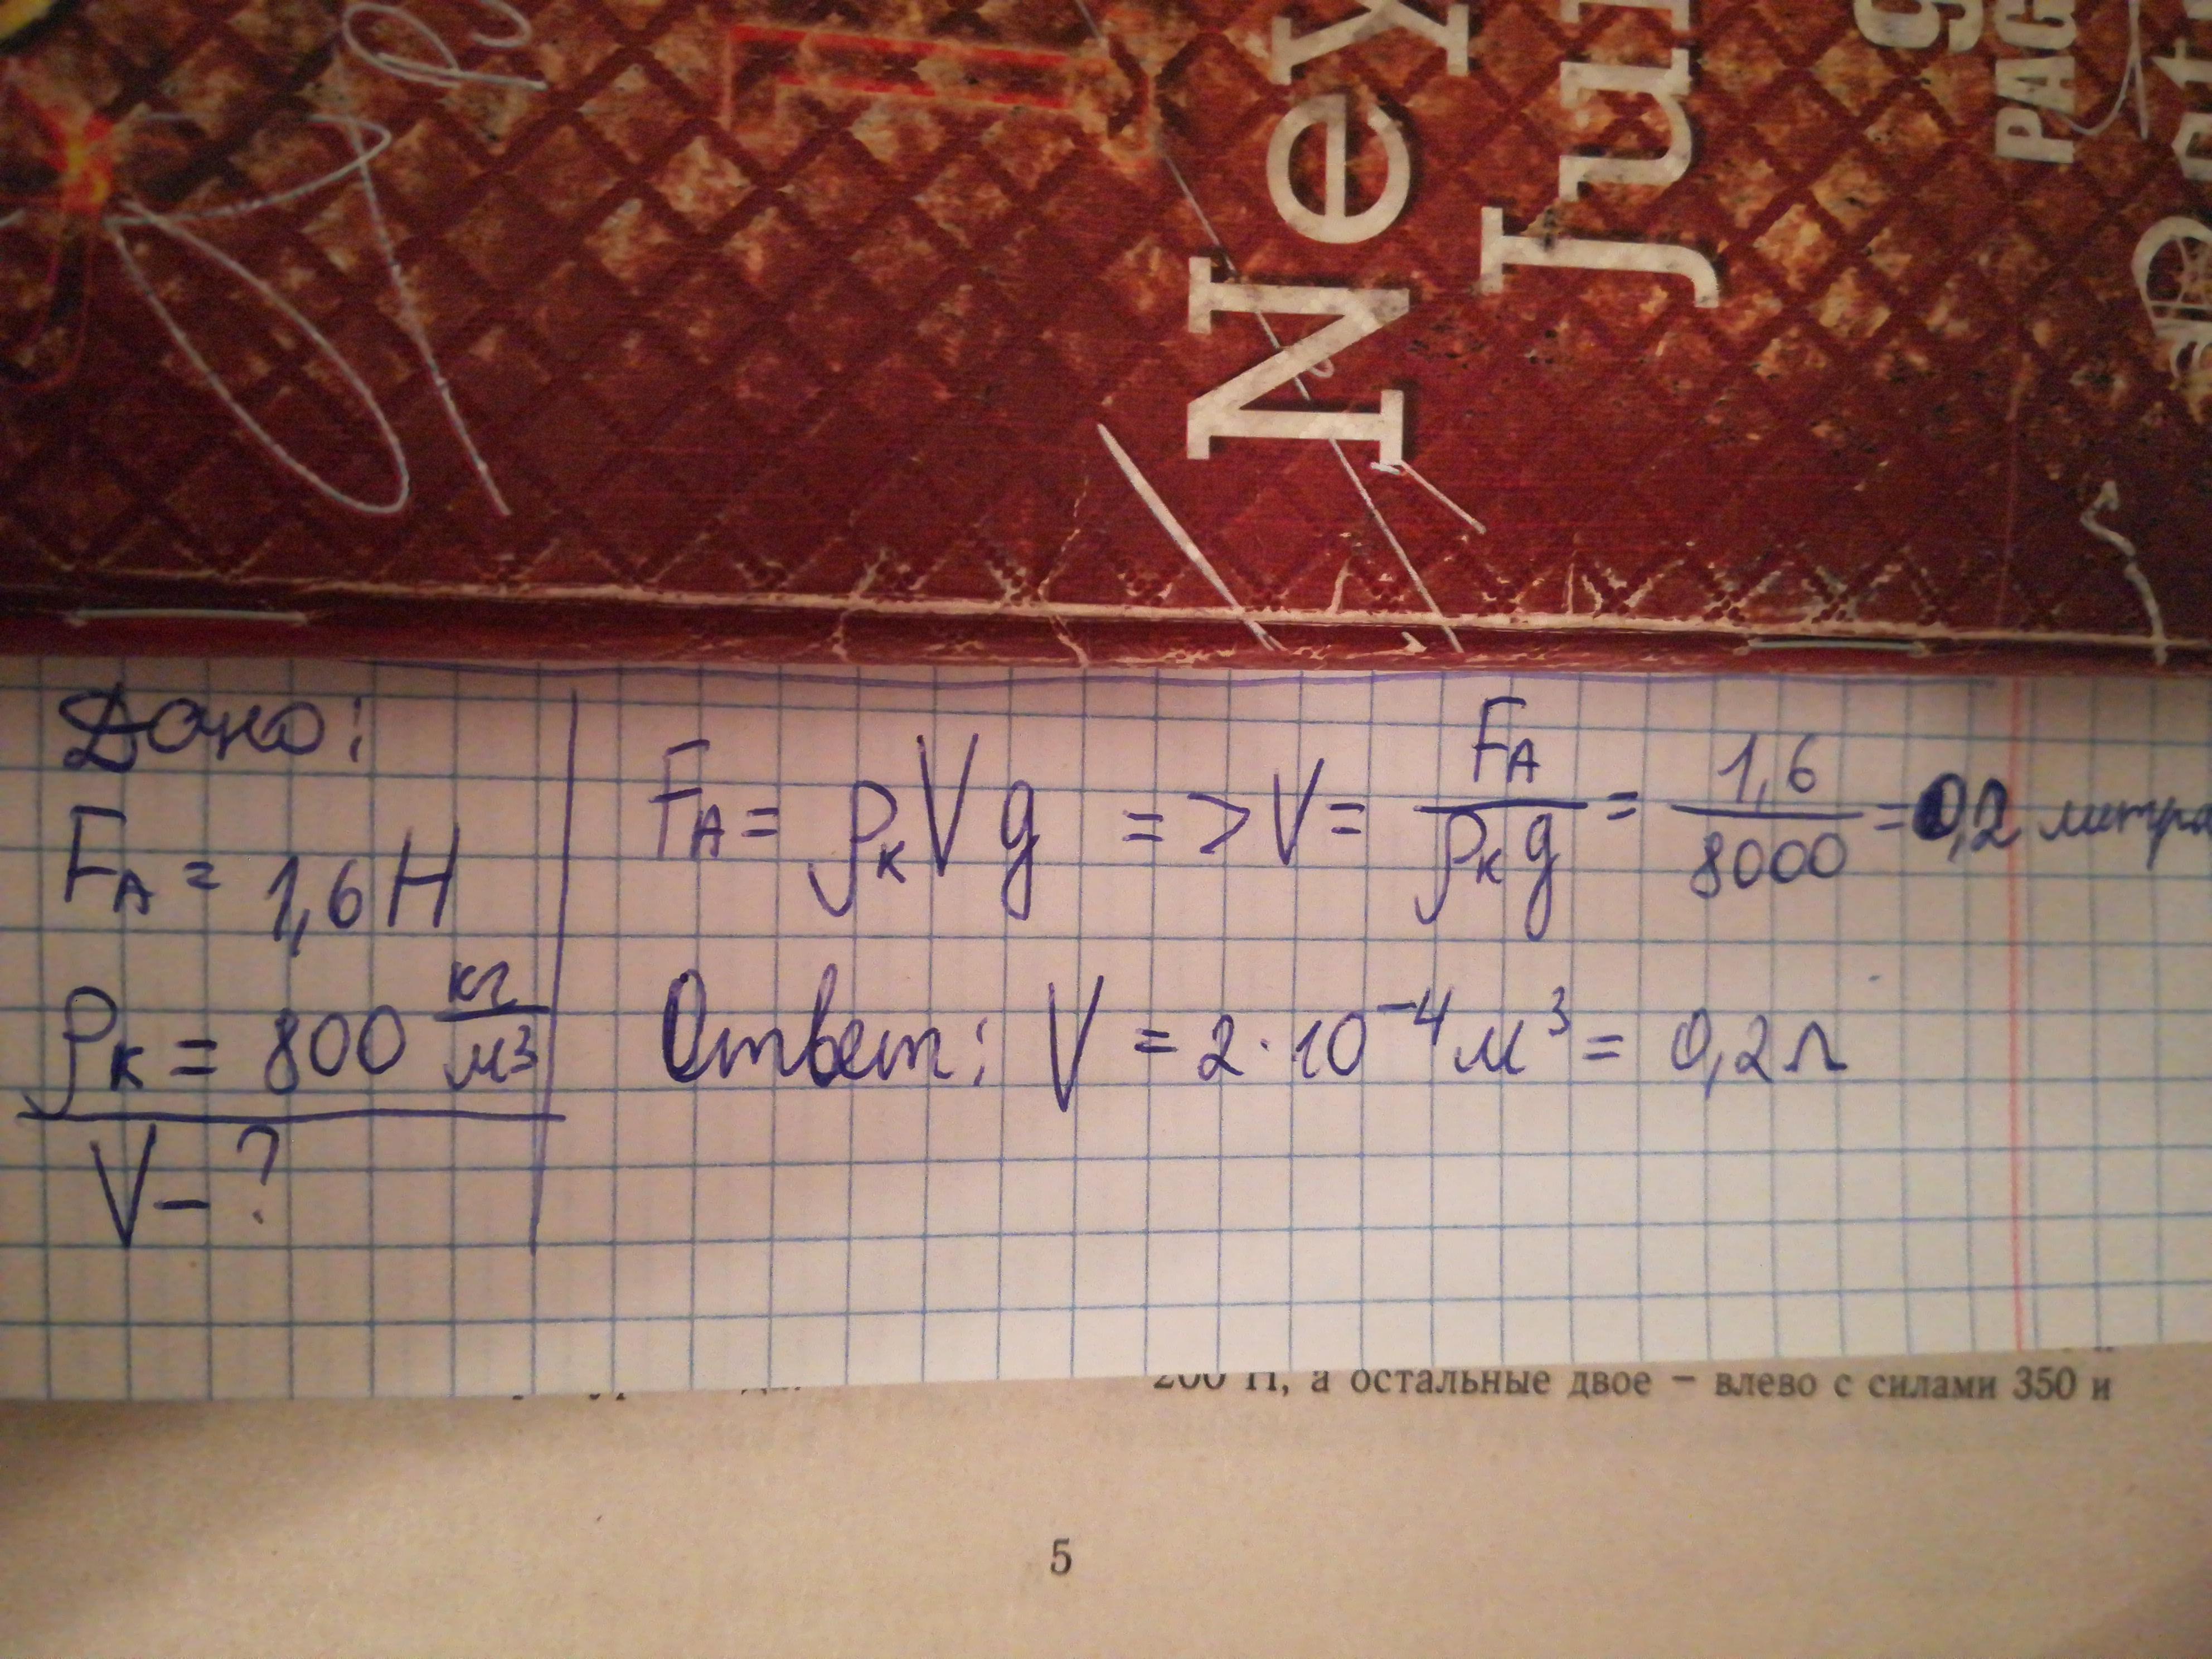 Ney
Jui
PAG
Дано:
F_A = 1,6 Н
ρ_к = 800 кг/м³
V – ?
F_A = ρ_к V g => V = F_A / ρ_к g = 1,6 / 8000 = 0,2 литра
Ответ: V = 2·10⁻⁴ м³ = 0,2 л
200 Н, а остальные двое – влево с силами 350 и
5